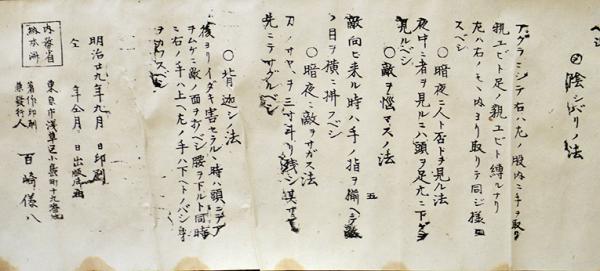 ベシ
○陰シバリノ法
アグラニシテ右ハ左ノ股内ニ手ヲ取リ
親ユビト足ノ親ユビト縛ルナリ
左ハ右ノモヽ内ヨリ取リテ同ジ様
スベシ
○暗夜ニ人ト否トヲ見ル法
夜中ニ者ヲ見ルニハ頭ヲ足元ニ下ゲ
見ルベシ
○敵ヲ悩マスノ法
敵向ヒ来ル時ハ手ノ指ヲ揃ヘテ敵
ノ目ヲ横ニ拂フベシ
五
○暗夜ニ敵ヲサガス法
刀ノサヤヲ三寸斗リ残シ
先ニテサグルベシ
○背迦シノ法
後ヨリイダキ害セラルヽ時ハ頭ニテア
ヲムケニ敵ノ面ヲ打ベシ腰ヲ下ルト同時
ニ右ノ手ハ上ヘ左ノ手ハ下ヘトノバシ
スベシ
明治廿九年九月 日印刷
仝 年仝月 日出版
東京市浅草区小島町十九番地
著作印刷
兼発行人 百崎俊八
内務省
納本済